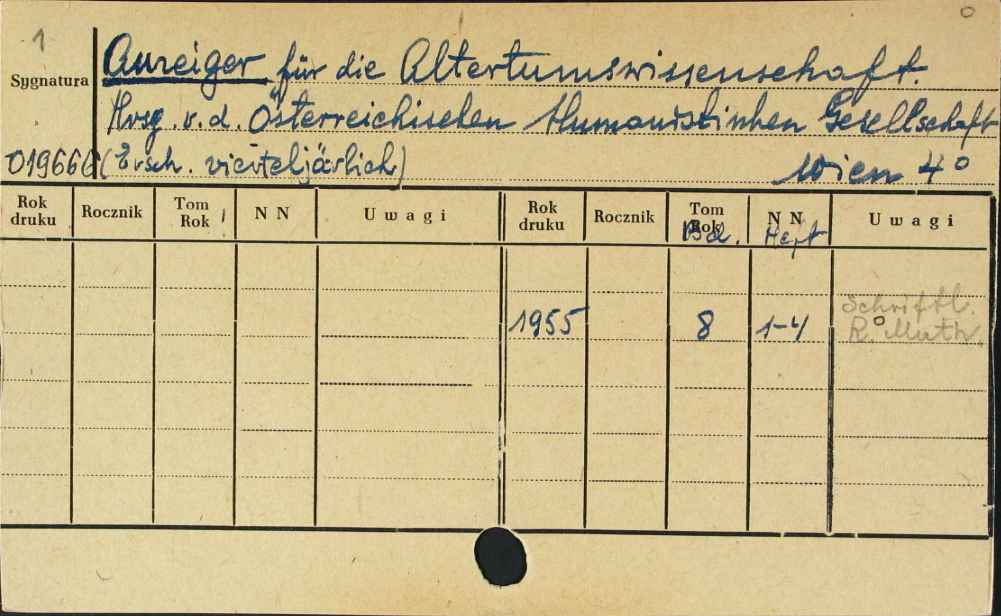 1
Sygnatura
Anzeiger für die Altertumswissenschaft.
Hrsg. v. d. Österreichischen Humanistischen Gesellschaft
019666 (Ersch. vierteljärlich) Wien 4°
Rok druku Rocznik Tom Rok NN Uwagi Rok druku Rocznik Tom Rok NN Uwagi
Bd. Heft
1955 8 1-4 Schriftl.
R. Muth.